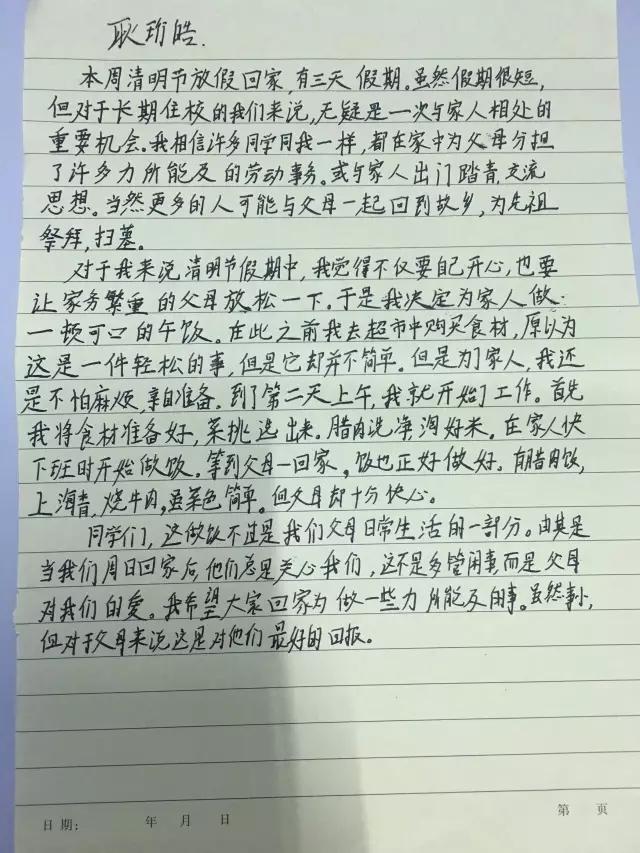 耿珩皓.
本周清明节放假回家,有三天假期。虽然假期很短,
但对于长期住校的我们来说,无疑是一次与家人相处的
重要机会。我相信许多同学同我一样,都在家中为父母分担
了许多力所能及的劳动事务。或与家人出门踏青,交流
思想。当然更多的人可能与父母一起回到故乡,为先祖
祭拜,扫墓。
对于我来说清明节假期中,我觉得不仅要自己开心,也要
让家务繁重的父母放松一下。于是我决定为家人做
一顿可口的午饭。在此之前我去超市中购买食材,原以为
这是一件轻松的事,但是它却并不简单。但是为了家人,我还
是不怕麻烦,亲自准备。到了第二天上午,我就开始了工作。首先
我将食材准备好,菜挑选出来。腊肉洗净,淘好米。在家人快
下班时开始做饭。等到父母一回家。饭也正好做好。有腊肉饭,
上海青,烧牛肉,虽菜色简单。但父母却十分快心。
同学们,这做饭不过是我们父母日常生活的一部分。由其是
当我们周日回家后,他们总是关心我们,这不是多管闲事,而是父母
对我们的爱。我希望大家回家为做一些力所能及的事。虽然事小,
但对于父母来说这是对他们最好的回报。
日期: 年 月 日
第 页